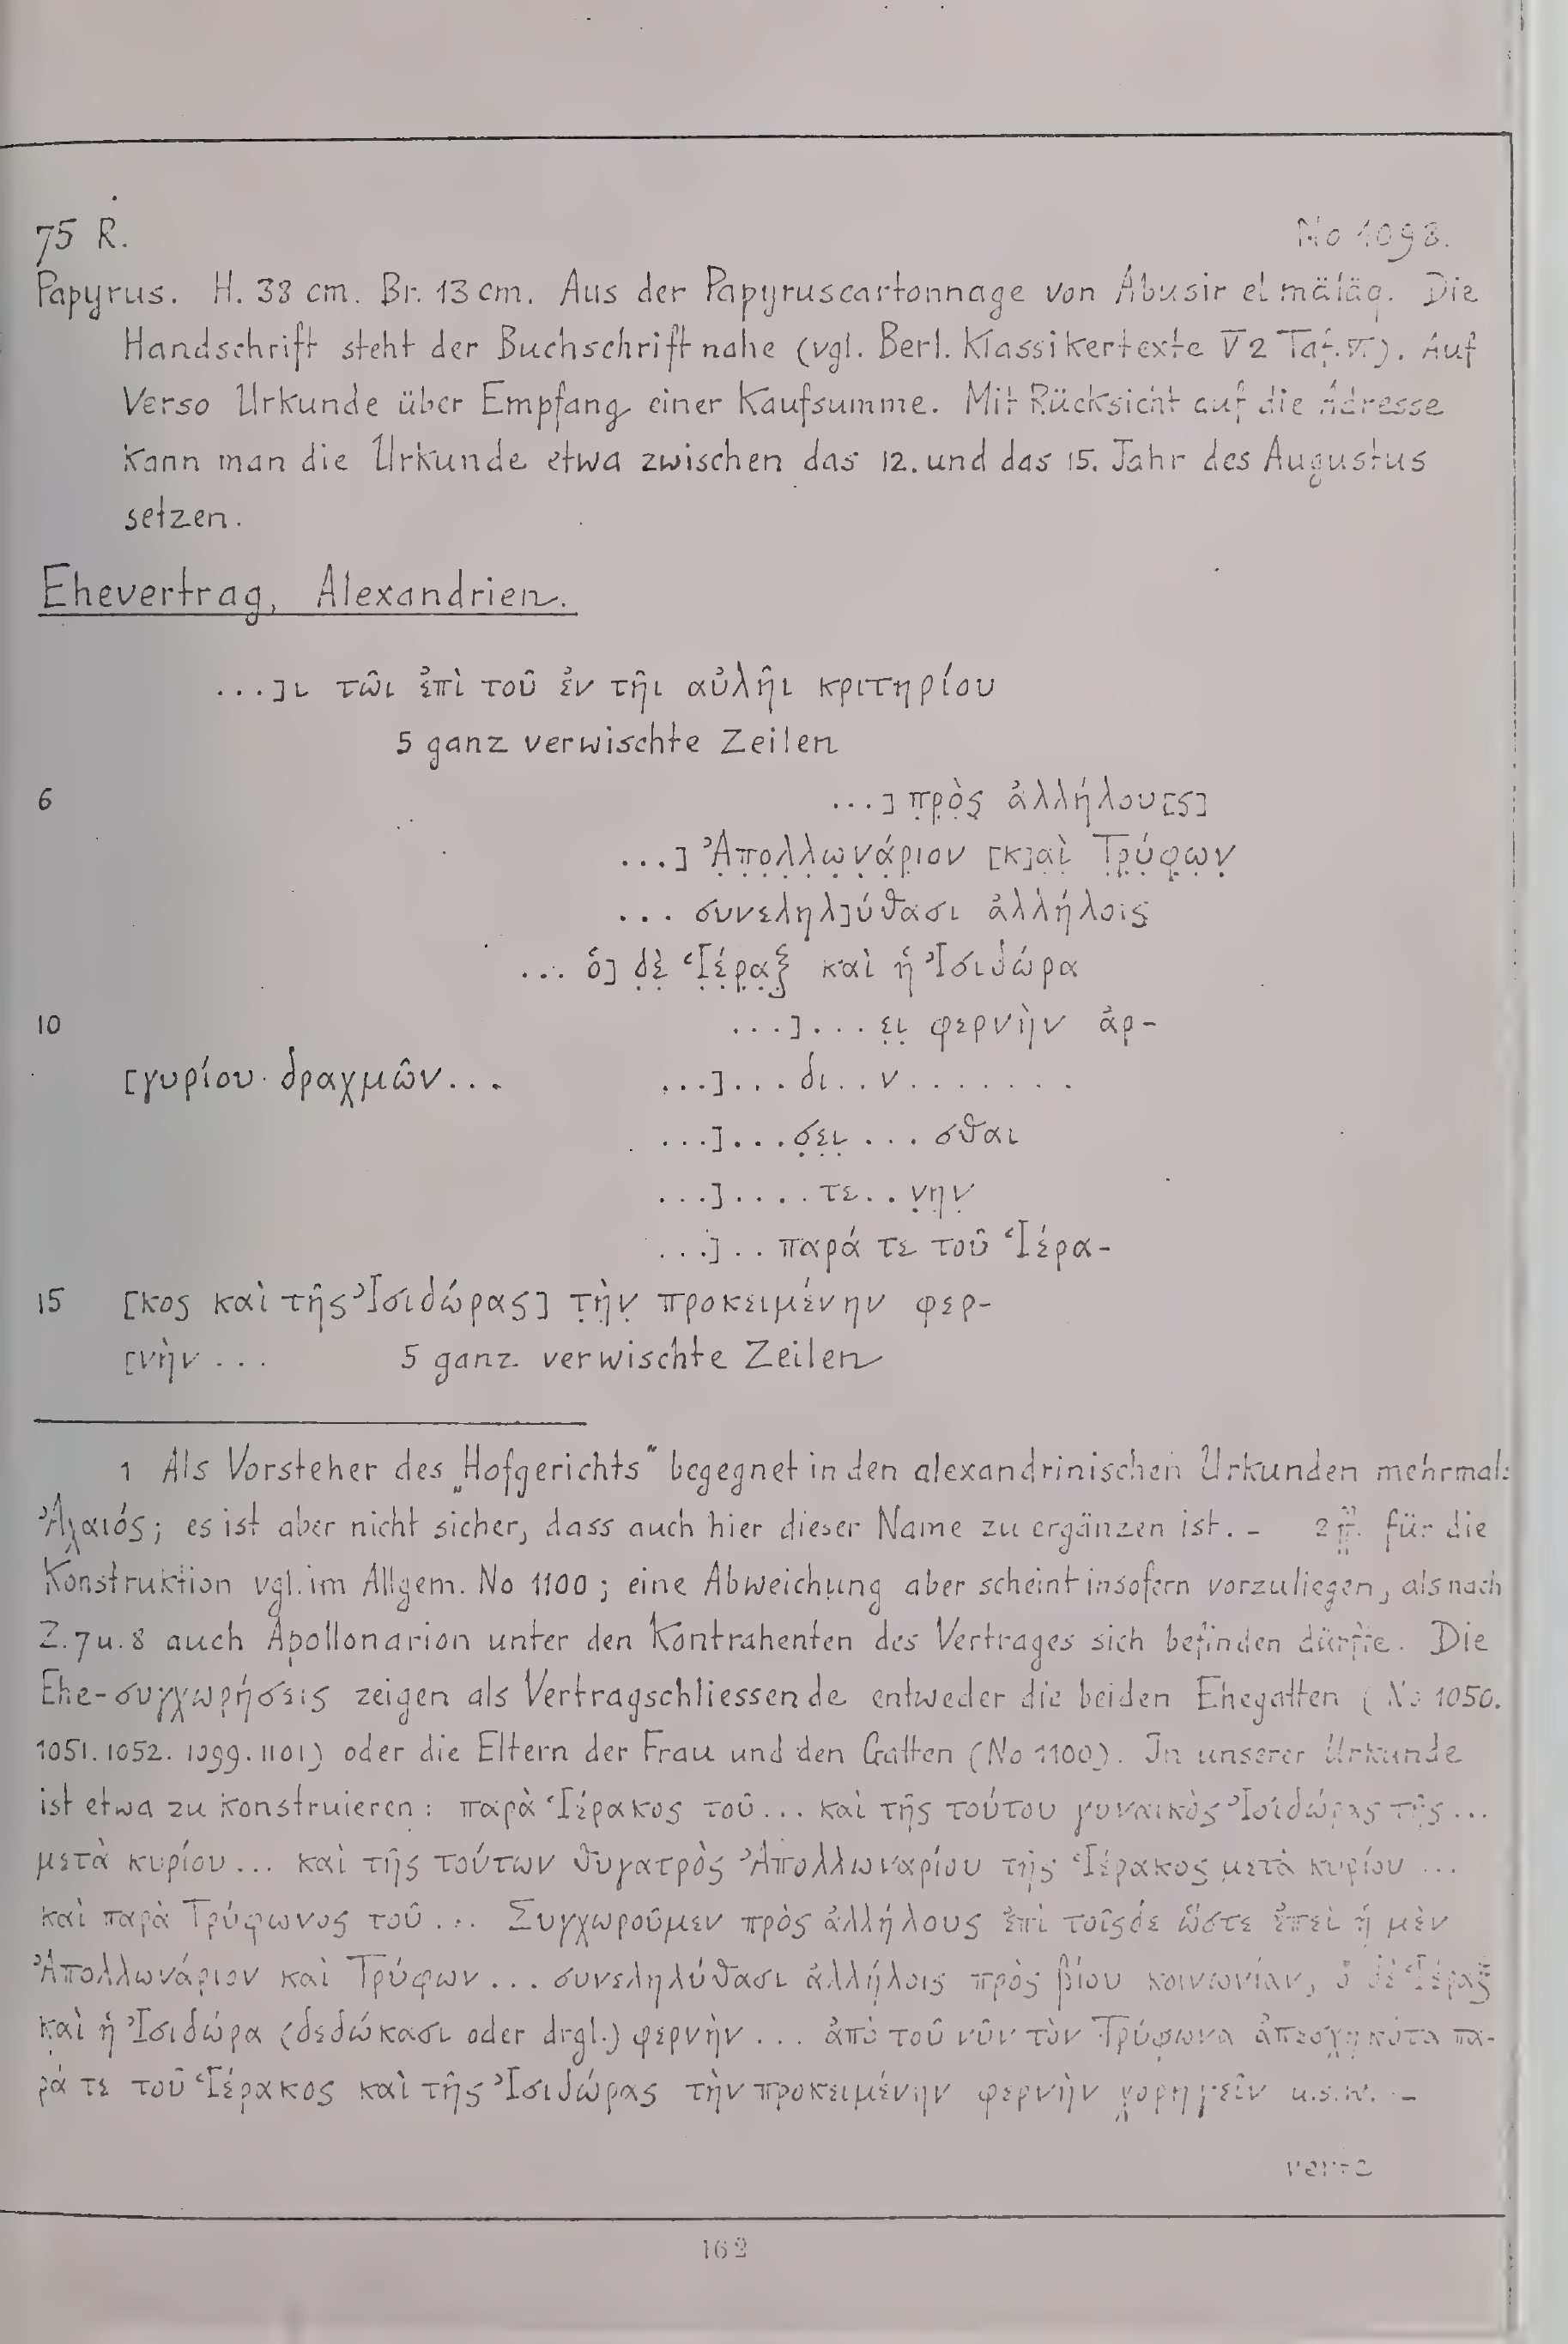 75 R. No 1098.
Papyrus. H. 38 cm. Br. 13 cm. Aus der Papyruscartonnage von Abusir el mäläq. Die
Handschrift steht der Buchschrift nahe (vgl. Berl. Klassikertexte V 2 Taf. VI). Auf
Verso Urkunde über Empfang einer Kaufsumme. Mit Rücksicht auf die Adresse
kann man die Urkunde etwa zwischen das 12. und das 15. Jahr des Augustus
setzen.
Ehevertrag, Alexandrien.
...]ι τῶι ἐπὶ τοῦ ἐν τῆι αὐλῆι κριτηρίου
5 ganz verwischte Zeilen
6 ...] π̣ρ̣ὸ̣ς̣ ἀλλήλου[ς]
...] Ἀ̣π̣ο̣λ̣λ̣ω̣ν̣ά̣ρ̣ιον [κ]α̣ὶ̣ Τ̣ρ̣ύ̣φ̣ω̣ν̣
... συνεληλ]ύθασι ἀλλήλοις
... ὁ] δ̣ὲ̣ Ἱ̣έ̣ρ̣α̣ξ̣ καὶ ἡ Ἰσιδώρα
10 ...]... ε̣ι̣ φερνὴν ἀρ-
[γυρίου δραχμῶν... ...]... δι..ν.......
...]...σ̣ε̣ι̣ ... σθαι
...]....τε..ν̣η̣ν̣
...].. παρά τε τοῦ Ἱέρα-
15 [κος καὶ τῆς Ἰσιδώρας] τ̣ὴ̣ν̣ προκειμένην φερ-
[νὴν ... 5 ganz verwischte Zeilen
1 Als Vorsteher des „Hofgerichts“ begegnet in den alexandrinischen Urkunden mehrmals
Ἀχαιός; es ist aber nicht sicher, dass auch hier dieser Name zu ergänzen ist. – 2 ff. für die
Konstruktion vgl. im Allgem. No 1100; eine Abweichung aber scheint insofern vorzuliegen, als nach
Z. 7 u. 8 auch Apollonarion unter den Kontrahenten des Vertrages sich befinden dürfte. Die
Ehe-συγχωρήσεις zeigen als Vertragschliessende entweder die beiden Ehegatten (No 1050.
1051. 1052. 1099. 1101) oder die Eltern der Frau und den Gatten (No 1100). In unserer Urkunde
ist etwa zu konstruieren: παρὰ Ἱέρακος τοῦ... καὶ τῆς τούτου γυναικὸς Ἰσιδώρας τῆς...
μετὰ κυρίου... καὶ τῆς τούτων θυγατρὸς Ἀπολλωναρίου τῆς Ἱέρακος μετὰ κυρίου ...
καὶ παρὰ Τρύφωνος τοῦ ... Συγχωροῦμεν πρὸς ἀλλήλους ἐπὶ τοῖσδε ὥστε ἐπεὶ ἡ μὲν
Ἀπολλωνάριον καὶ Τρύφων ... συνεληλύθασι ἀλλήλοις πρὸς βίου κοινωνίαν, ὁ δὲ Ἱέραξ
καὶ ἡ Ἰσιδώρα (δεδώκασι oder drgl.) φερνὴν ... ἀπὸ τοῦ νῦν τὸν Τρύφωνα ἀπεσχηκότα πα-
ρά τε τοῦ Ἱέρακος καὶ τῆς Ἰσιδώρας τὴν προκειμένην φερνὴν χορηγεῖν u.s.w. –
verte
162